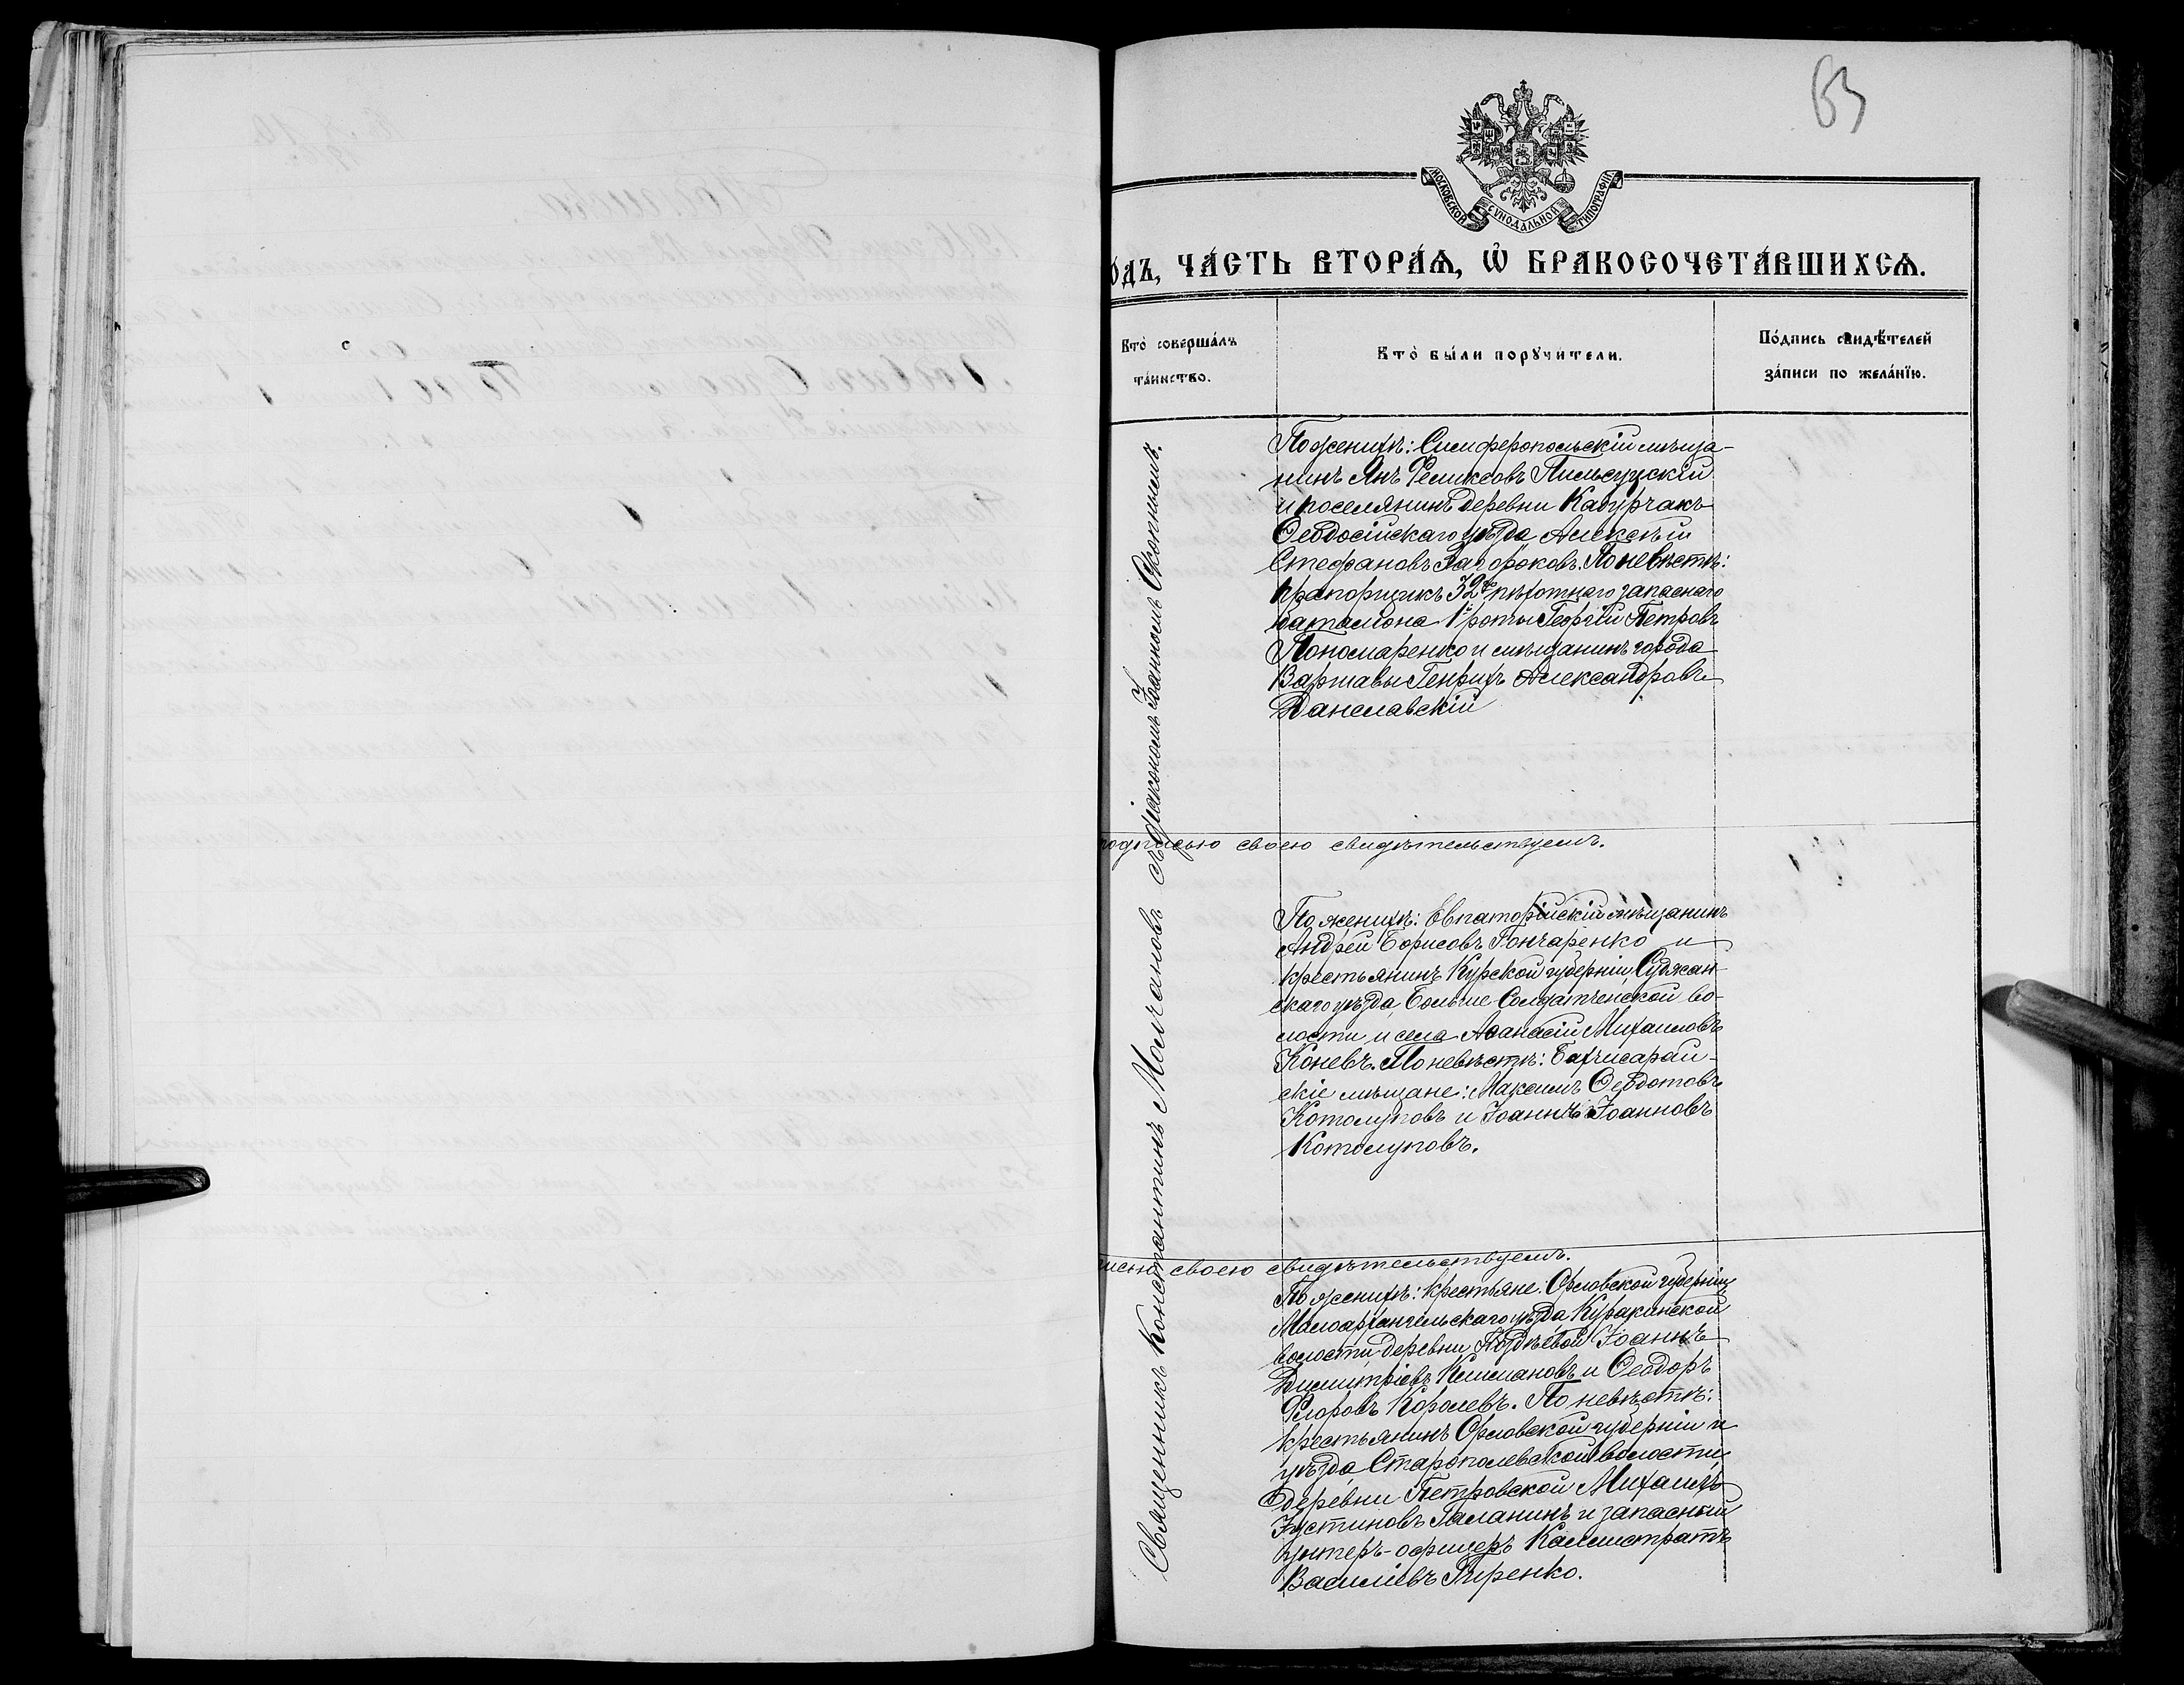 63
МОСКОВСКОЙ СѴНОДАЛЬНОЙ ТИПОГРАФІИ
ОДЪ, ЧАСТЬ ВТОРАѦ, Ѡ БРАКОСОЧЕТАВШИХСѦ.
Кто совершалъ
таинство.
Кто были поручители.
Подпись свидѣтелей
записи по желанїю.
Священникъ Константинъ Молчановъ съ діакономъ Іоанномъ Скопнымъ.
По женихѣ: Симферопольскій мѣща-
нинъ Янъ Феликсовъ Пильсудскій
и поселянинъ деревни Кадурчакъ
Ѳеодосійскаго уѣзда Алексѣй
Стефановъ Загороковъ. По невѣстѣ:
прапорщикъ 32го пѣхотнаго запаснаго
баталіона 1й роты Георгій Петровъ
Пономаренко и мѣщанинъ города
Варшавы Генрихъ Александровъ
Данелавскій
подписью своею свидѣтельствуемъ.
По женихѣ: Евпаторійскій мѣщанинъ
Андрей Борисовъ Гончаренко и
крестьянинъ Курской губерніи, Суджан-
скаго уѣзда, Больше-Солдатченской во-
лости и села Аѳанасій Михаиловъ
Коневъ. По невѣстѣ: Бахчисарай-
скіе мѣщане: Максимъ Ѳеодотовъ
Котолуповъ и Іоаннъ Іоанновъ
Котолуповъ.
писью своею свидѣтельствуемъ.
По женихѣ: крестьяне: Орловской губерніи,
Малоархангельскаго уѣзда Куракинской
волости, деревни Іоаннъ
Димитріевъ Климановъ и Ѳеодоръ
Флоровъ Королевъ. По невѣстѣ:
крестьянинъ Орловской губерніи и
уѣзда Старополевской волости,
деревни Петровской Михаилъ
Іустиновъ Галанинъ и запасный
унтеръ-офицеръ Каллистратъ
Василіевъ Гиренко.